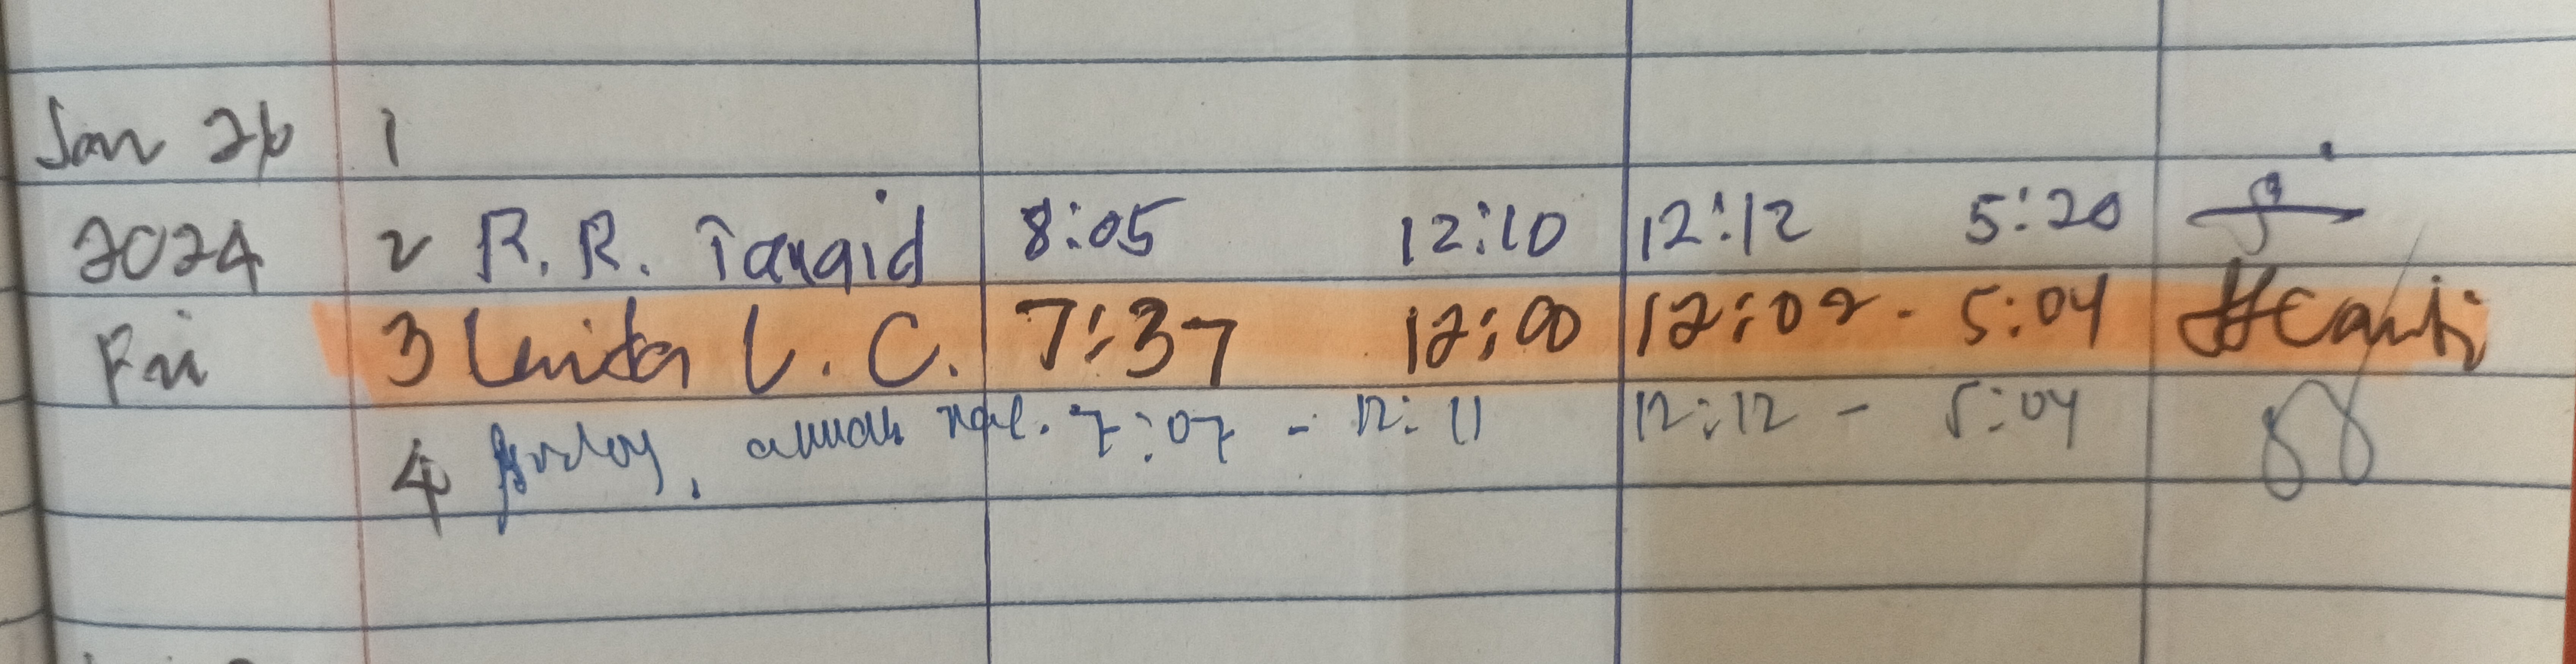 Jan 26 1
2024 2 R. R. Tangid 8:05 12:10 12:12 5:20
Fri 3 Lenita L. C. 7:37 12:00 12:02 - 5:04
4 7:07 - 12:11 12:12 - 5:04